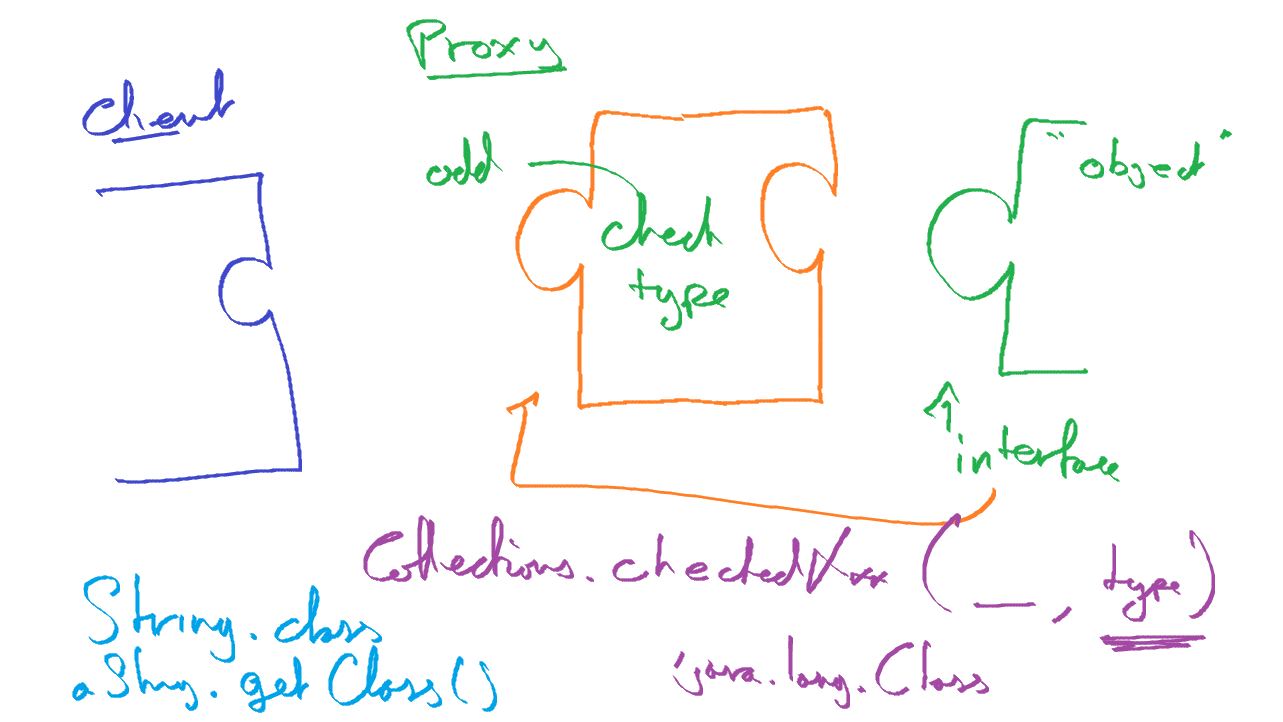 Proxy
Client
add
check
type
"object"
interface
Collections.checkedXxx (__, type)
String.class
aString.getClass()
java.lang.Class